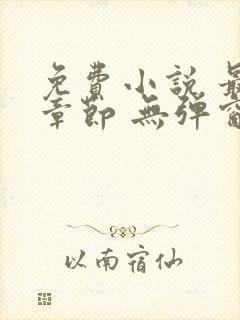 免費小說 最
章節 無彈窗
以南宿仙